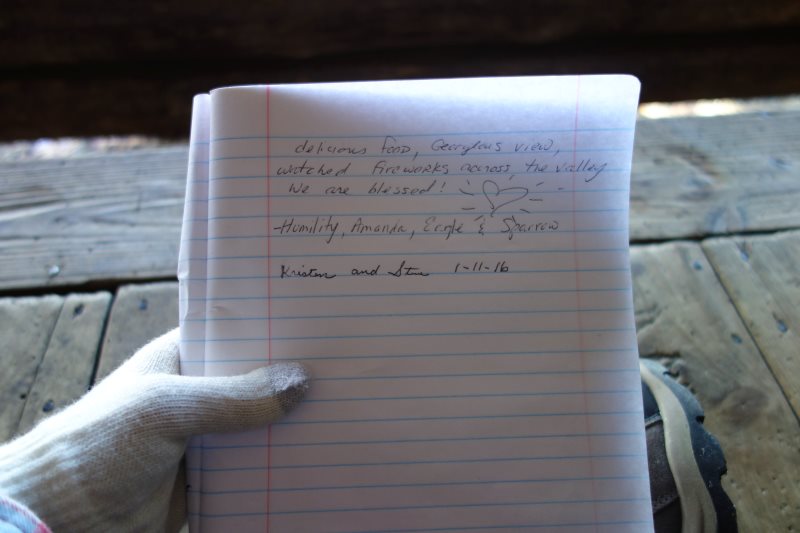 delicious food, Georgeous view,
watched fireworks across the valley
We are blessed!
Humility, Amanda, & Sparrow
Kristen and Steve 1-11-16